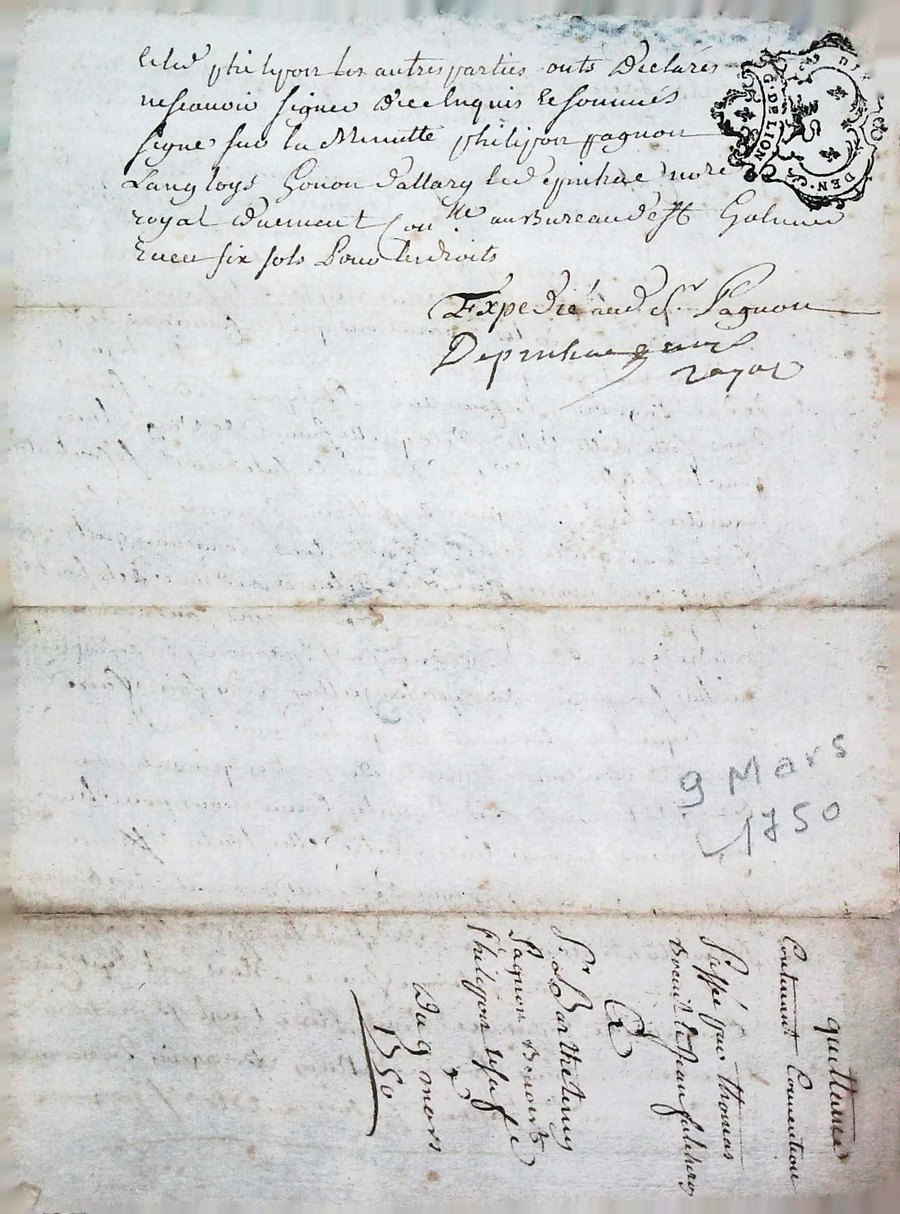 et led philipon les autres parties onts declarés
ne scavoir signer de ce enquis et sommés
signe sur la Minutte philipon pagnon
Langloys Gonon dallary led nore
royal duement Conlle au Bureau de st Galmier
Receu six sols Pour les droits
Expedié aud Sr Pagnon
royal
G. DE LION
DEN.
9 Mars
1750
quittance
Contenant Convention
Passé par thomas
Benoit et Jean
&
Sr Barthelemy
Pagnon Benoit
Philipon
Du 9 mars
1750